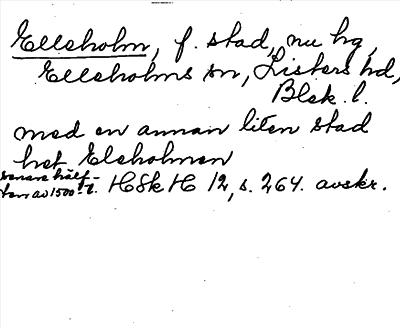 Elleholm, f. stad, nu hg,
Elleholms sn, Listers hd,
Blek. l.
med en annan liten stad
het Eleholmen
senare hälf-
ten av 1500-t. HSk H 12, s. 264. avskr.